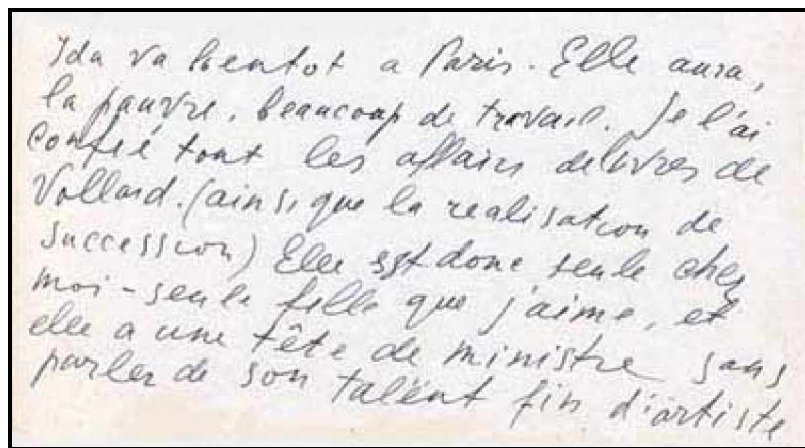 Ida va bientot a Paris. Elle aura,
la pauvre, beaucoup de travail. Je l'ai
confié tout les affairs de livres de
Vollard. (ainsi que la realisation de
succession) Elle est donc seule chez
moi - seule fille que j'aime, et
elle a une tête de ministre sans
parler de son talent fin d'artiste